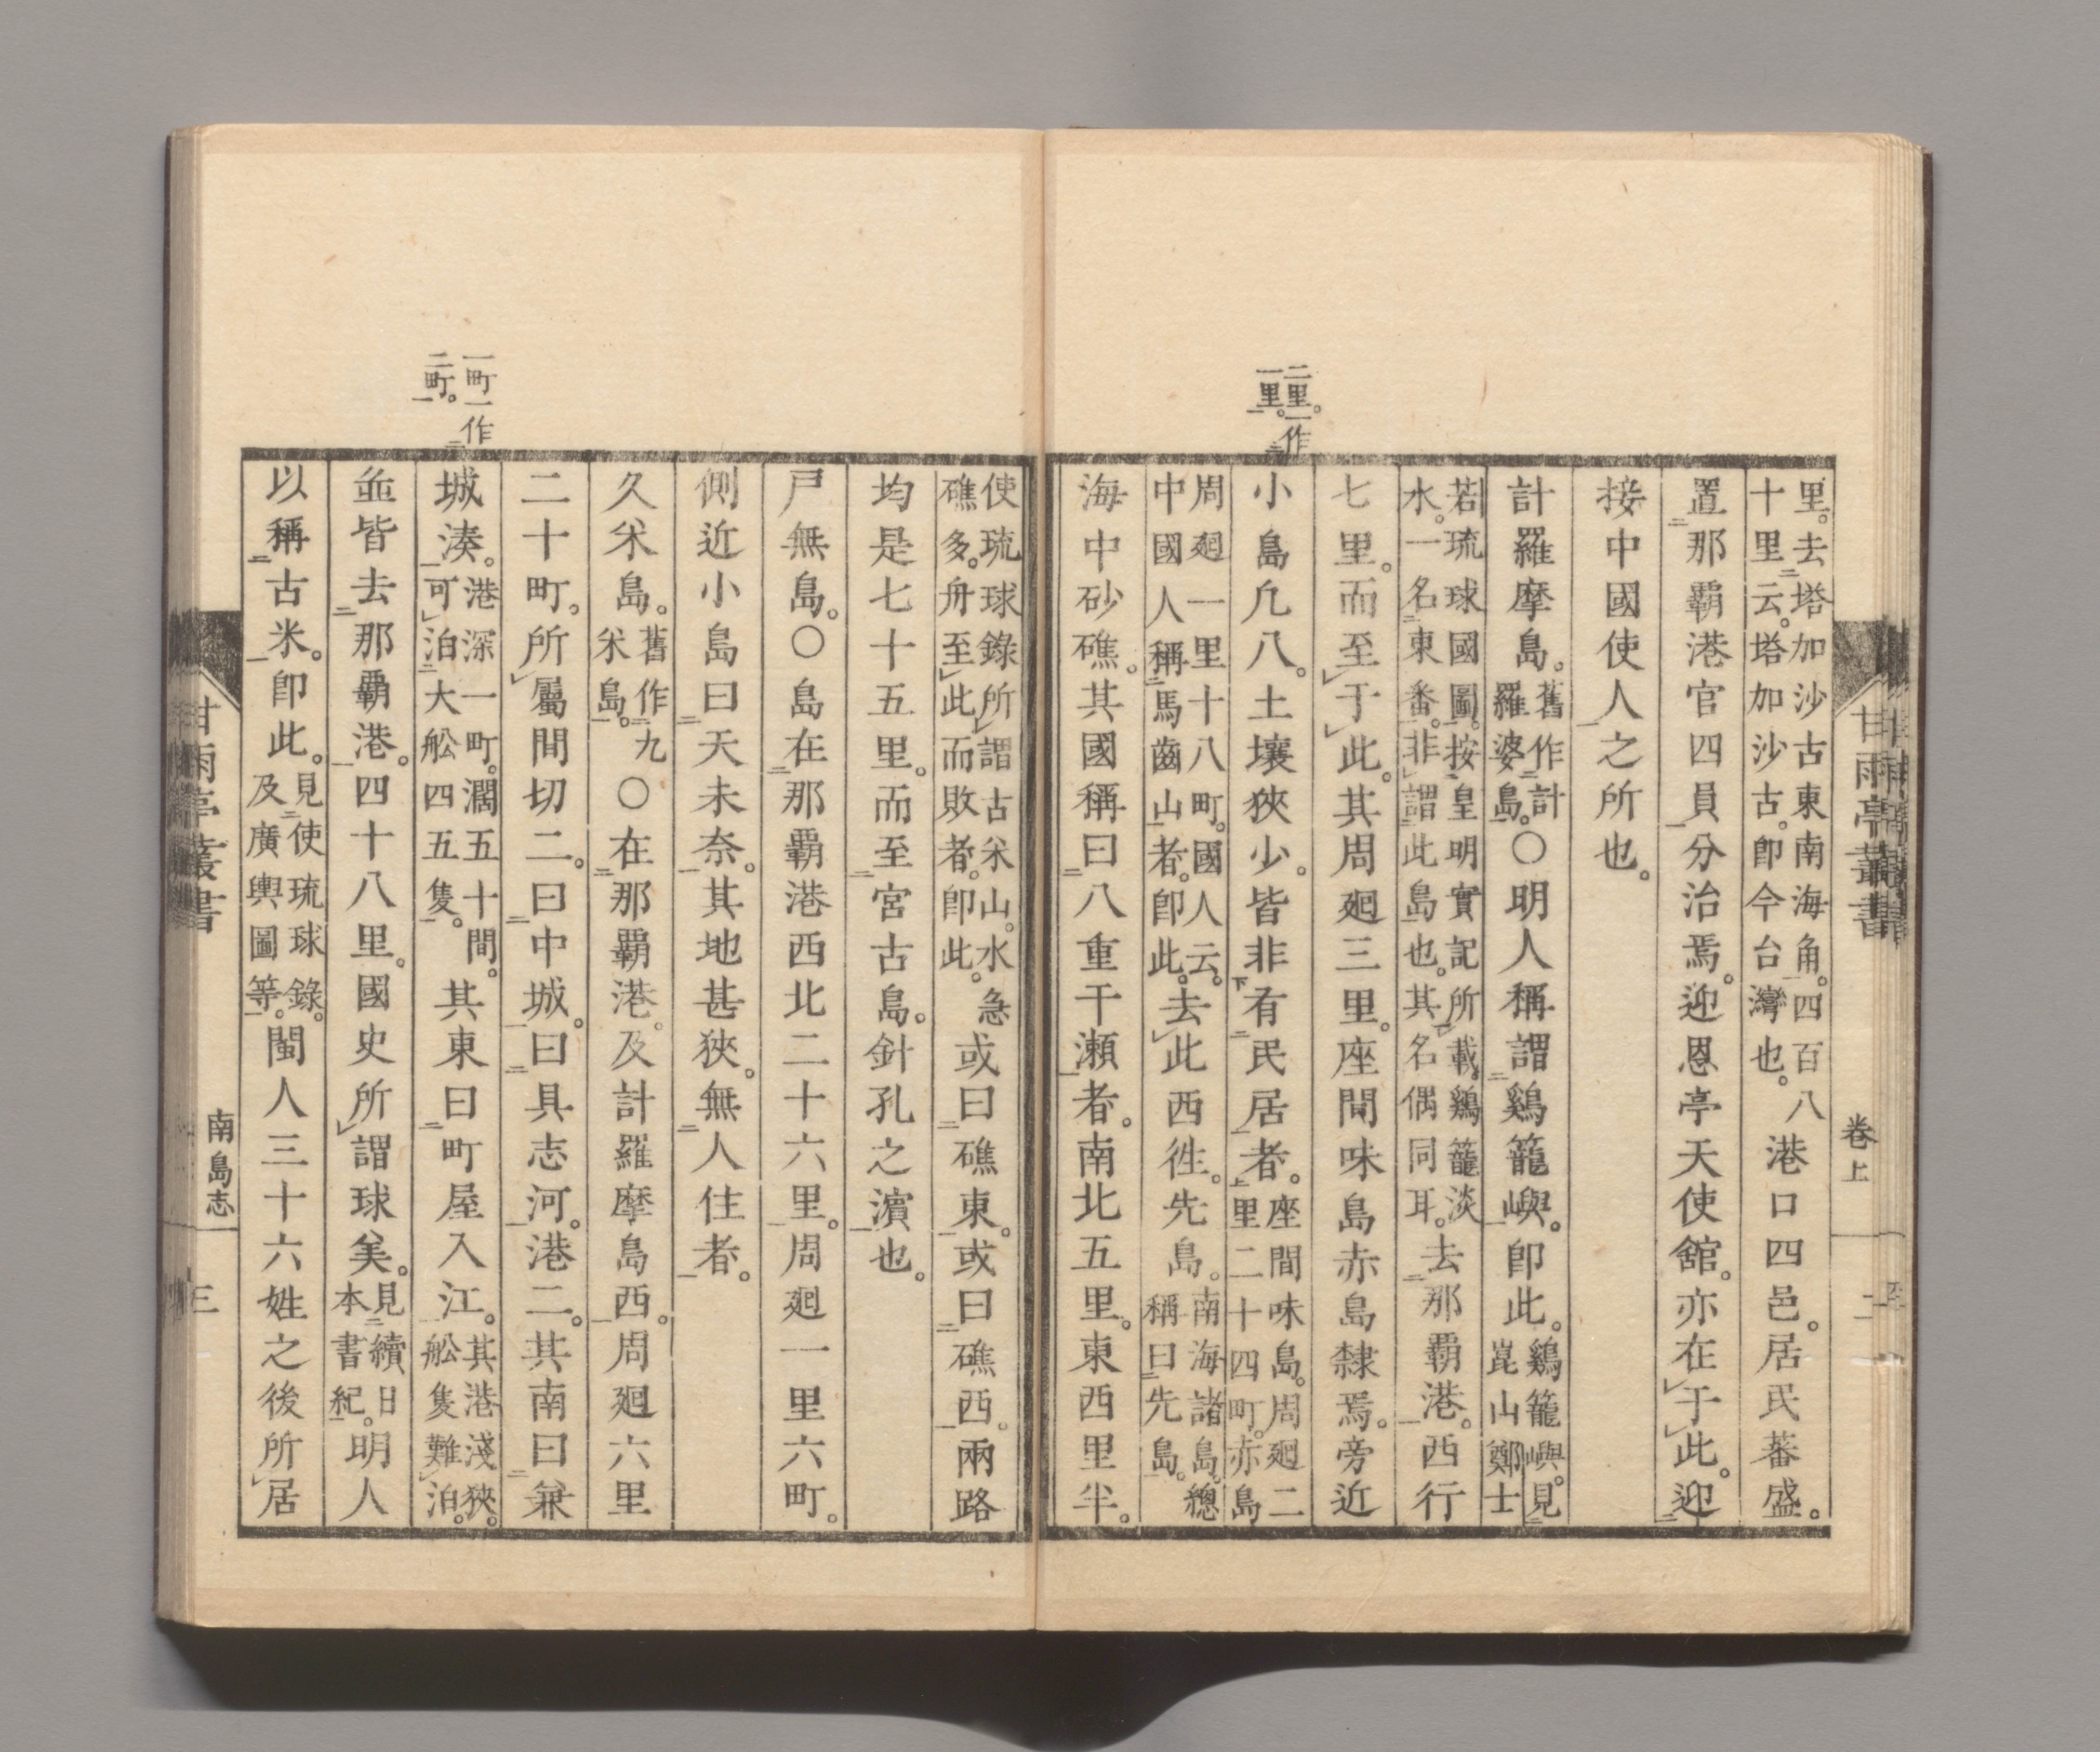 里。去塔加沙古東南海角。四百八十里云。塔加沙古。即今台灣也。港口四邑。居民蕃盛。
置那覇港官四員分治焉。迎恩亭天使舘。亦在于此。迎
接中國使人之所也。
計羅摩島。舊作計羅婆島。〇明人稱謂鷄籠嶼。即此。鷄籠嶼。見崑山鄭士
若琉球國圖。按皇明實記所載。鷄籠淡水。一名東番。非謂此島也。其名偶同耳。去那覇港。西行
七里。而至于此。其周廻三里。座間味島赤島隸焉。旁近
二里。一作一里。
小島凢八。土壤狹少。皆非有民居者。座間味島。周廻二里二十四町。赤島
周廻一里十八町。國人云。中國人稱馬齒山者。即此。去此西徃。先島。南海諸島。總稱曰先島。
海中砂礁。其國稱曰八重干瀬者。南北五里。東西里半。
甘雨亭叢書 卷上 二
使琉球錄所謂古米山。水急礁多。舟至此而敗者。即此。或曰礁東。或曰礁西。兩路
均是七十五里。而至宮古島。針孔之濵也。
戸無島。〇島在那覇港西北二十六里。周廻一里六町。
側近小島曰天未奈。其地甚狹。無人住者。
久米島。舊作九米島。〇在那覇港。及計羅摩島西。周廻六里
二十町。所屬間切二。曰中城。曰具志河。港二。其南曰兼
一町一作二町。
城湊。港深一町。濶五十間。可泊大舩四五隻。其東曰町屋入江。其港淺狹。舩隻難泊。
並皆去那覇港。四十八里。國史所謂球美。見續日本書紀。明人
以稱古米。即此。見使琉球錄。及廣輿圖等。閩人三十六姓之後所居
甘雨亭叢書 南島志 三